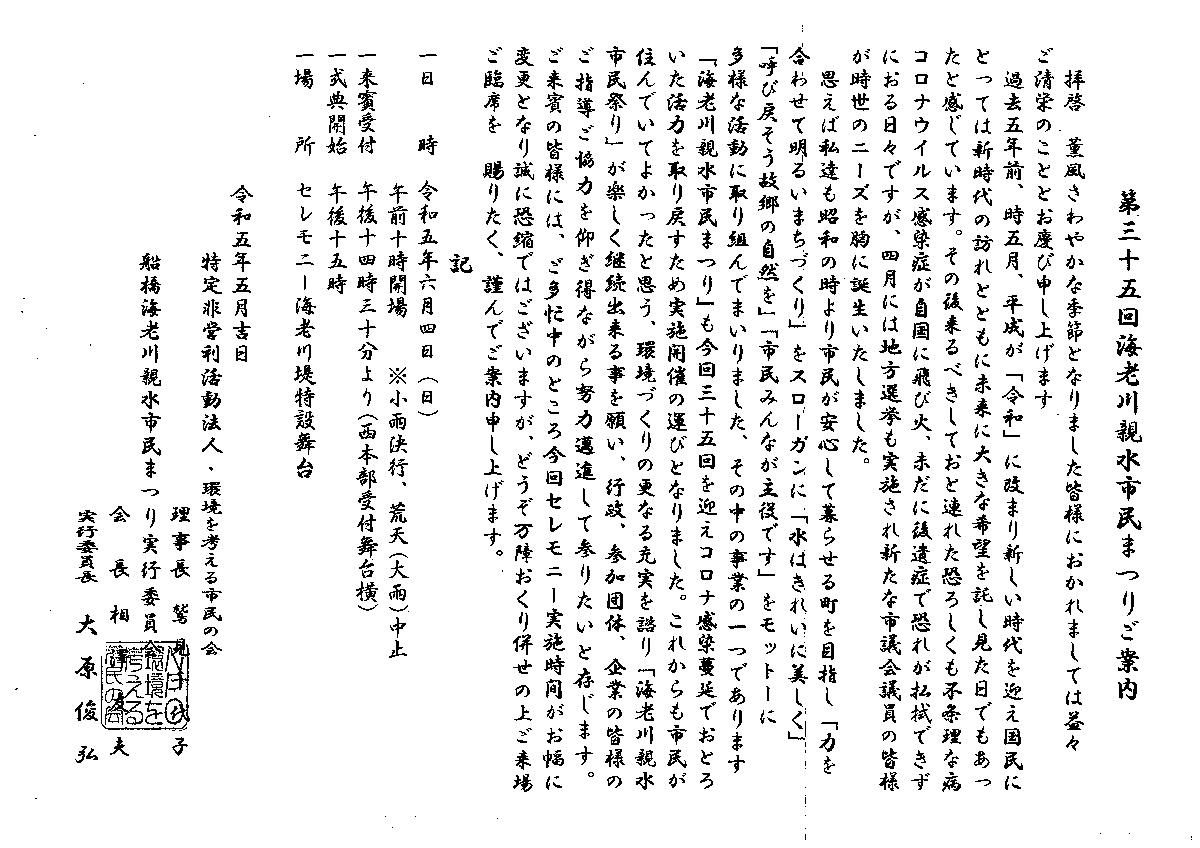 第三十五回海老川親水市民まつりご案内
拝啓　薫風さわやかな季節となりました皆様におかれましては益々
ご清栄のこととお慶び申し上げます
過去五年前、時五月、平成が「令和」に改まり新しい時代を迎え国民に
とっては新時代の訪れとともに未来に大きな希望を託し見た日でもあっ
たと感じています。その後来るべきしておと連れた恐ろしくも不条理な病
コロナウイルス感染症が自国に飛び火、未だに後遺症で恐れが払拭できず
におる日々ですが、四月には地方選挙も実施され新たな市議会議員の皆様
が時世のニーズを胸に誕生いたしました。
思えば私達も昭和の時より市民が安心して暮らせる町を目指し「力を
合わせて明るいまちづくり」をスローガンに「水はきれいに美しく」
「呼び戻そう故郷の自然を」「市民みんなが主役です」をモットーに
多様な活動に取り組んでまいりました、その中の事業の一つであります
「海老川親水市民まつり」も今回三十五回を迎えコロナ感染蔓延でおとろ
いた活力を取り戻すため実施開催の運びとなりました。これからも市民が
住んでいてよかったと思う、環境づくりの更なる充実を諮り「海老川親水
市民祭り」が楽しく継続出来る事を願い、行政、参加団体、企業の皆様の
ご指導ご協力を仰ぎ得ながら努力邁進して参りたいと存じます。
ご来賓の皆様には、ご多忙中のところ今回セレモニー実施時間がお幅に
変更となり誠に恐縮ではございますが、どうぞ万障おくり併せの上ご来場
ご臨席を　賜りたく、謹んでご案内申し上げます。
記
一日　　時　令和五年六月四日（日）
午前十時開場　※小雨決行、荒天（大雨）中止
一来賓受付　午後十四時三十分より（西本部受付舞台横）
一式典開始　午後十五時
一場　　所　セレモニー海老川堤特設舞台
令和五年五月吉日
特定非営利活動法人・環境を考える市民の会
理事長　鷲見　子
船橋海老川親水市民まつり実行委員会
会　長　相　夫
実行委員長　大　原　俊　弘
環境を
考える
市民の会